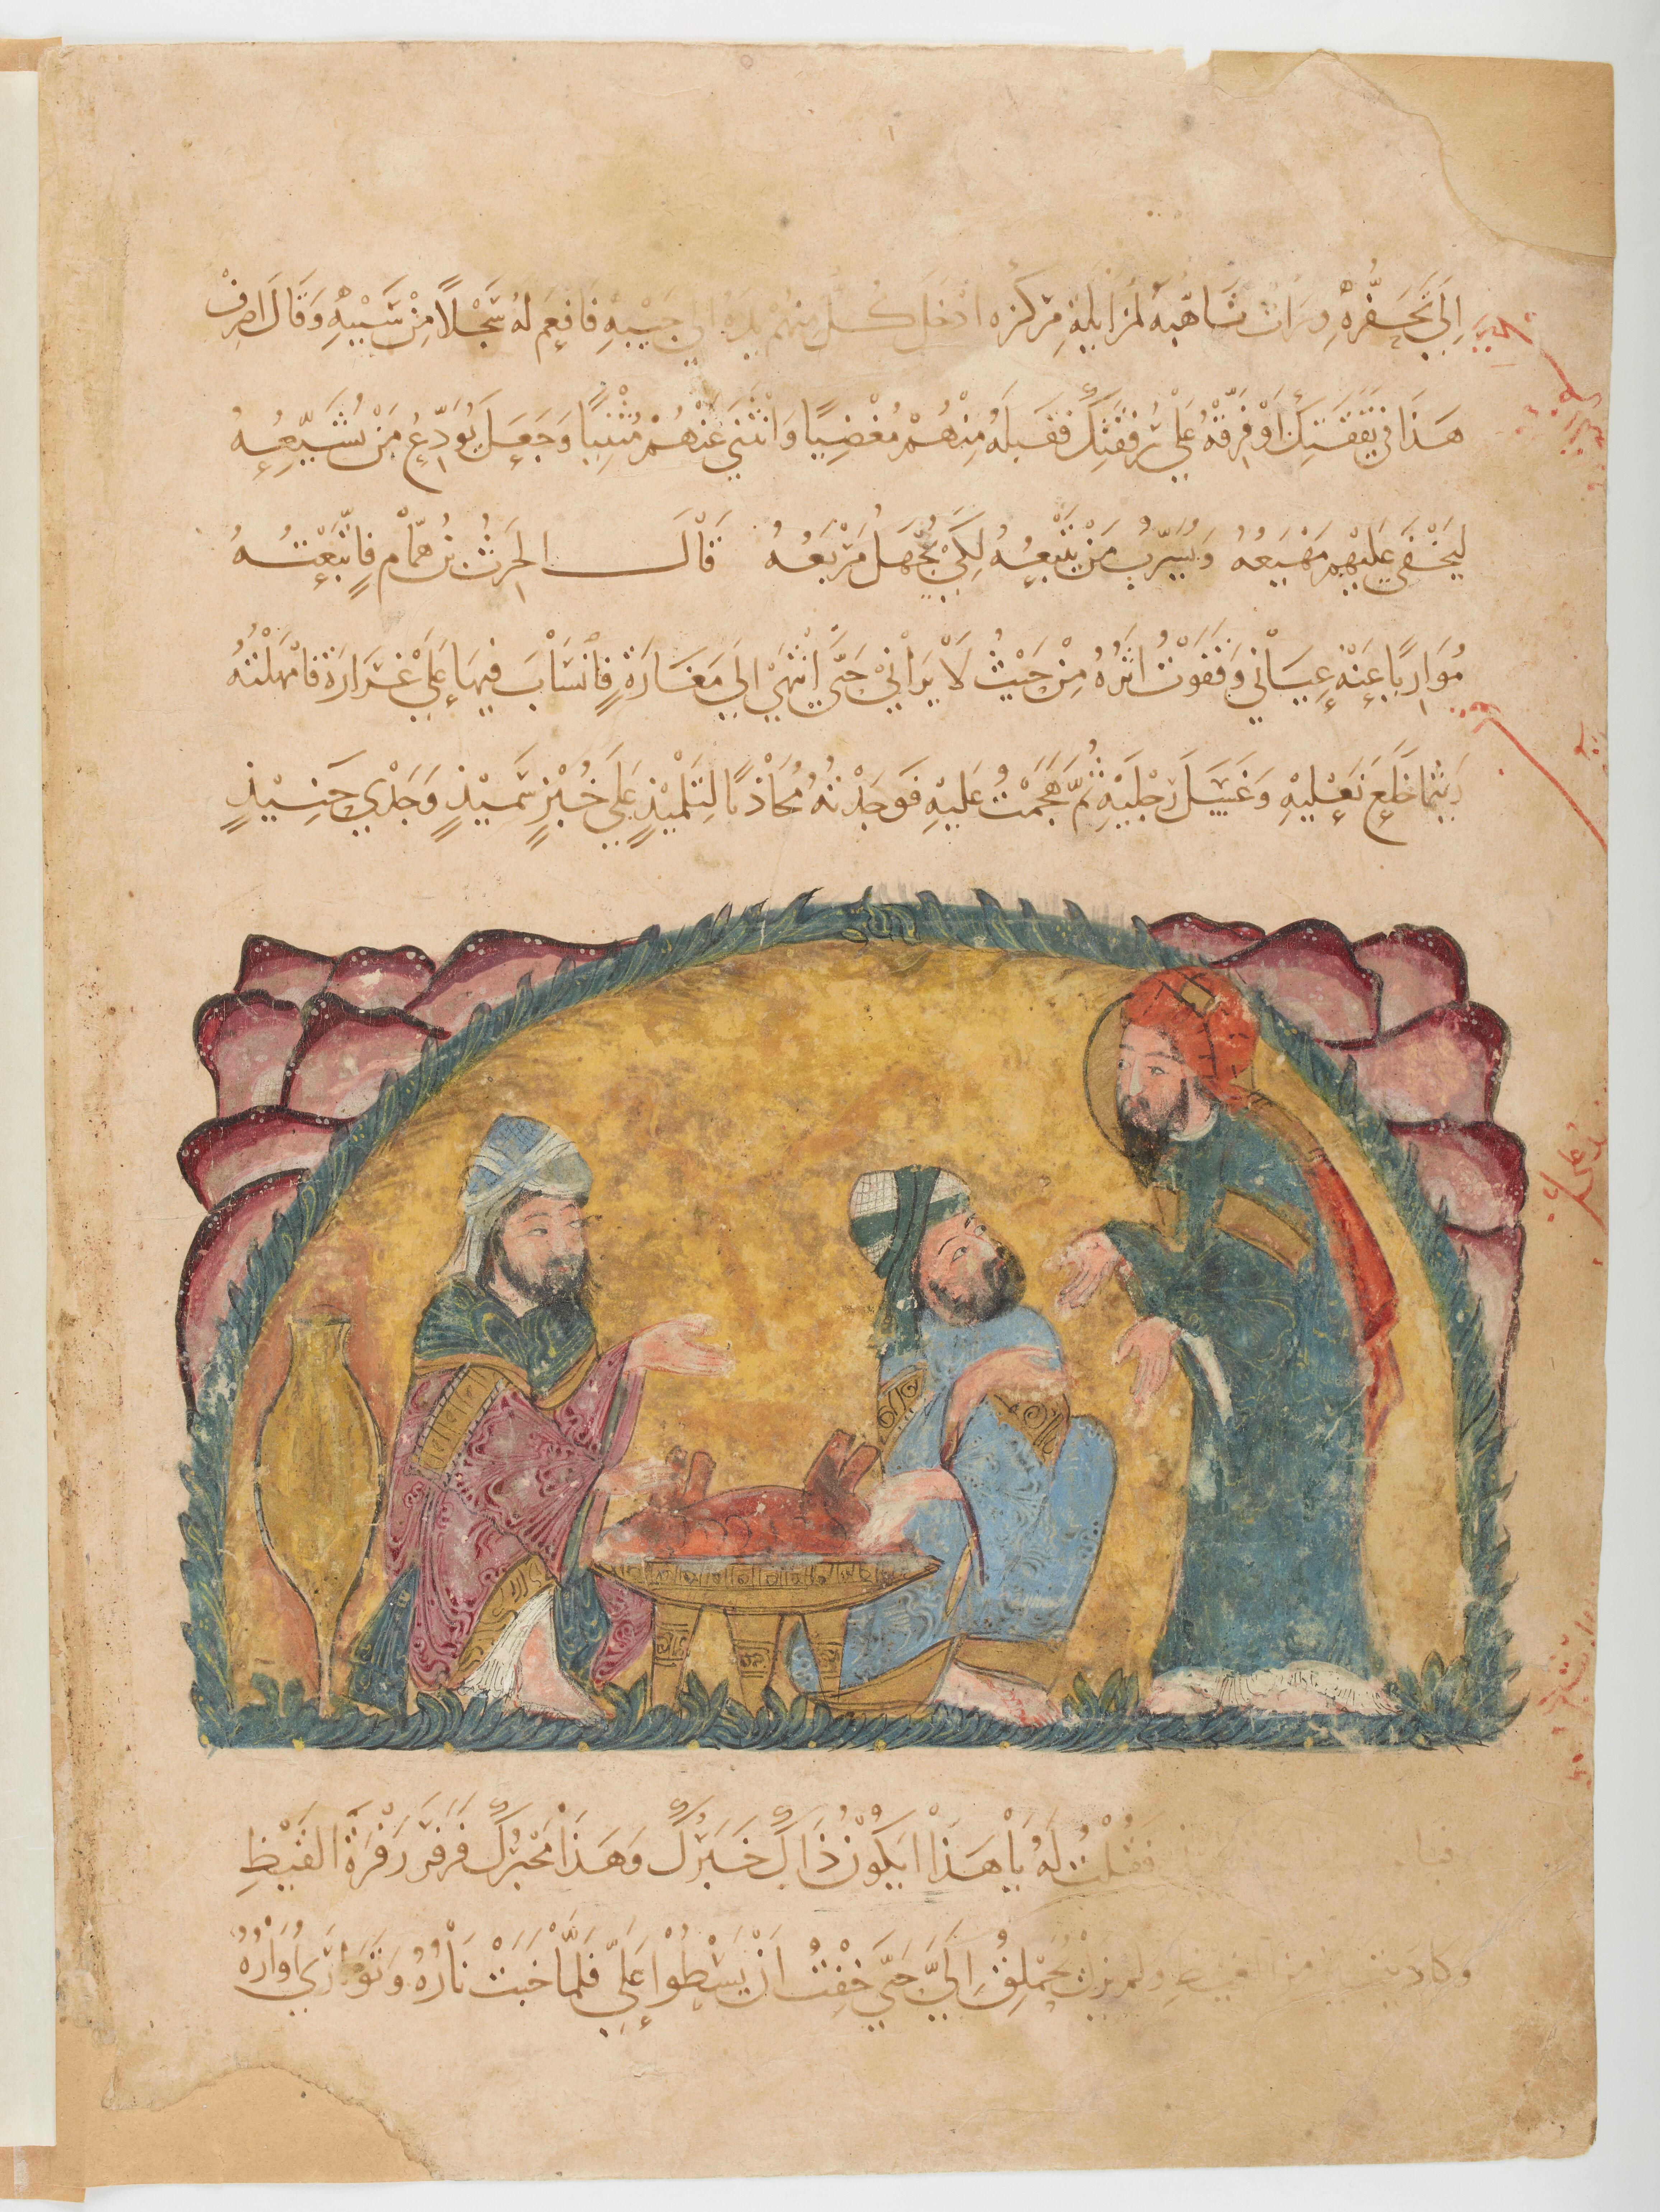 إِلَى تَحَفُّزِهِ وَرَأَتْ تَأَهُّبَهُ لِمُزَايَلَةِ مَرْكَزِهِ أَدْخَلَ كُلٌّ مِنْهُمْ يَدَهُ فِي جَيْبِهِ فَأَفْعَمَ لَهُ سَجْلًا مِنْ سَيْبِهِ وَقَالَ اصْرِفْ
هَذَا فِي نَفَقَتِكَ أَوْ فَرِّقْهُ عَلَى رُفْقَتِكَ فَقَبِلَهُ مِنْهُمْ مُغْضِيًا وَانْثَنَى عَنْهُمْ مُثْنِيًا وَجَعَلَ يُوَدِّعُ مَنْ يُشَيِّعُهُ
لِيَخْفَى عَلَيْهِمْ مَهْيَعُهُ وَيُسَرِّبُ مَنْ يَتْبَعُهُ لِكَيْ يُجْهَلَ مَرْبَعُهُ قَالَ الحَرِثُ بْنُ هَمَّامٍ فَاتَّبَعْتُهُ
مُوَارِيًا عَنْهُ عِيَانِي وَقَفَوْتُ أَثَرَهُ مِنْ حَيْثُ لَا يَرَانِي حَتَّى انْتَهَى إِلَى مَغَارَةٍ فَانْسَابَ فِيهَا عَلَى غَرَارَةٍ فَأَمْهَلْتُهُ
رَيْثَمَا خَلَعَ نَعْلَيْهِ وَغَسَلَ رِجْلَيْهِ ثُمَّ هَجَمْتُ عَلَيْهِ فَوَجَدْتُهُ مُحَاذِيًا لِتِلْمِيذٍ عَلَى خُبْزٍ سَمِيذٍ وَجَدْيٍ حَنِيذٍ
فَقُلْتُ لَهُ يَا هَذَا أَيَكُونُ ذَاكَ خَبَرَكَ وَهَذَا مَخْبَرَكَ فَزَفَرَ زَفْرَةَ القَيْظِ
وَكَادَ يَتَمَيَّزُ مِنَ الغَيْظِ وَلَمْ يَزَلْ يُحَمْلِقُ إِلَيَّ حَتَّى خِفْتُ أَنْ يَسْطُوَا عَلَيَّ فَلَمَّا خَبَتْ نَارُهُ وَتَوَارَى أُوَارُهُ